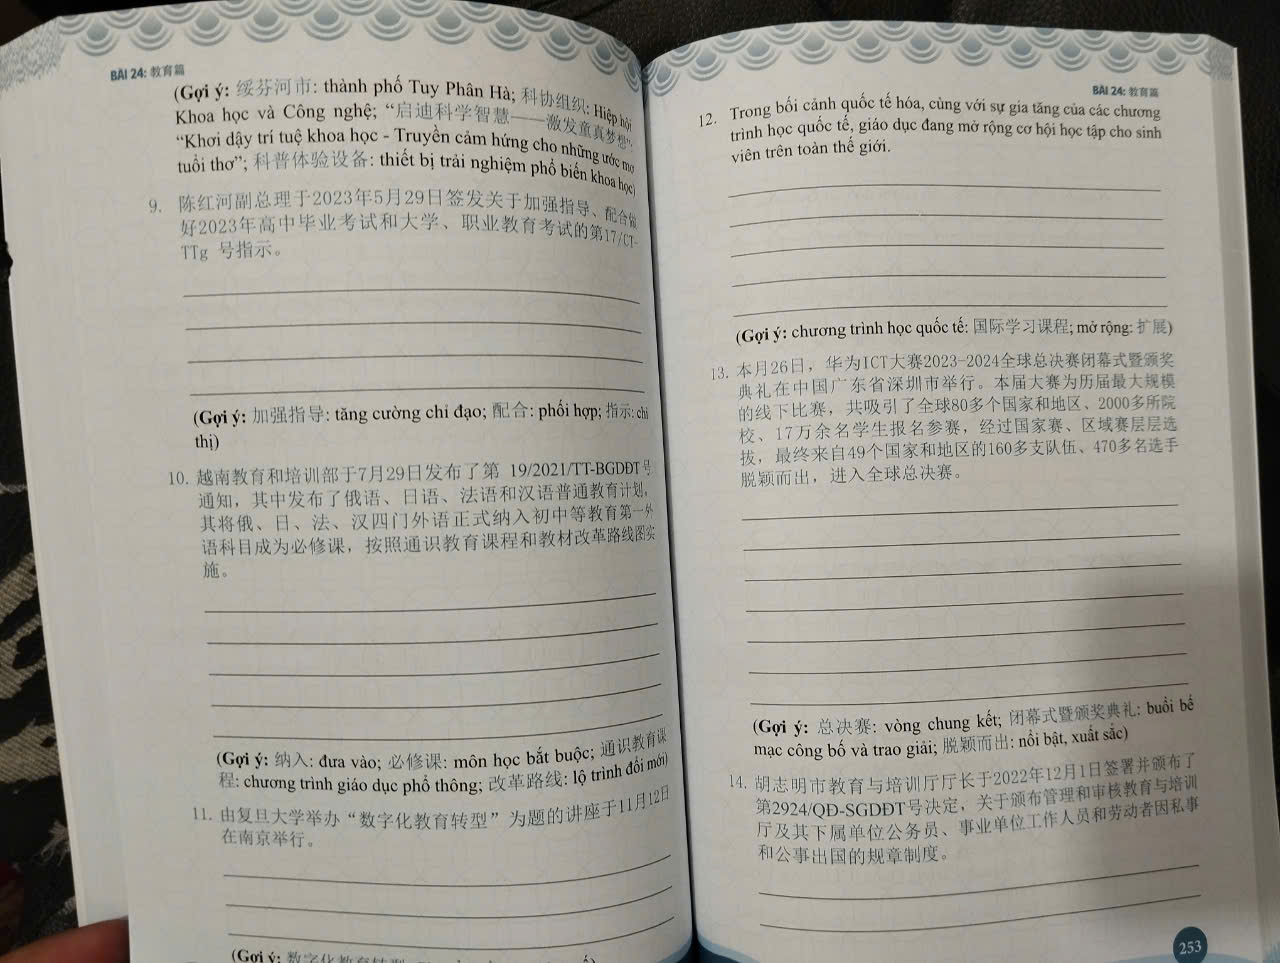 BÀI 24: 教育篇
(Gợi ý: 绥芬河市: thành phố Tuy Phân Hà; 科协组织: Hiệp hội
Khoa học và Công nghệ; “启迪科学智慧——激发童真梦想”:
“Khơi dậy trí tuệ khoa học - Truyền cảm hứng cho những ước mơ
tuổi thơ”; 科普体验设备: thiết bị trải nghiệm phổ biến khoa học)
9. 陈红河副总理于2023年5月29日签发关于加强指导、配合做
好2023年高中毕业考试和大学、职业教育考试的第17/CT-
TTg 号指示。
(Gợi ý: 加强指导: tăng cường chỉ đạo; 配合: phối hợp; 指示: chỉ
thị)
10. 越南教育和培训部于7月29日发布了第 19/2021/TT-BGDĐT号
通知，其中发布了俄语、日语、法语和汉语普通教育计划，
其将俄、日、法、汉四门外语正式纳入初中等教育第一外
语科目成为必修课，按照通识教育课程和教材改革路线图实
施。
(Gợi ý: 纳入: đưa vào; 必修课: môn học bắt buộc; 通识教育课
程: chương trình giáo dục phổ thông; 改革路线: lộ trình đổi mới)
11. 由复旦大学举办“数字化教育转型”为题的讲座于11月12日
在南京举行。
(Gợi ý: 数字化教育转型
BÀI 24: 教育篇
12. Trong bối cảnh quốc tế hóa, cùng với sự gia tăng của các chương
trình học quốc tế, giáo dục đang mở rộng cơ hội học tập cho sinh
viên trên toàn thế giới.
(Gợi ý: chương trình học quốc tế: 国际学习课程; mở rộng: 扩展)
13. 本月26日，华为ICT大赛2023-2024全球总决赛闭幕式暨颁奖
典礼在中国广东省深圳市举行。本届大赛为历届最大规模
的线下比赛，共吸引了全球80多个国家和地区、2000多所院
校、17万余名学生报名参赛，经过国家赛、区域赛层层选
拔，最终来自49个国家和地区的160多支队伍、470多名选手
脱颖而出，进入全球总决赛。
(Gợi ý: 总决赛: vòng chung kết; 闭幕式暨颁奖典礼: buổi bế
mạc công bố và trao giải; 脱颖而出: nổi bật, xuất sắc)
14. 胡志明市教育与培训厅厅长于2022年12月1日签署并颁布了
第2924/QĐ-SGDĐT号决定，关于颁布管理和审核教育与培训
厅及其下属单位公务员、事业单位工作人员和劳动者因私事
和公事出国的规章制度。
253